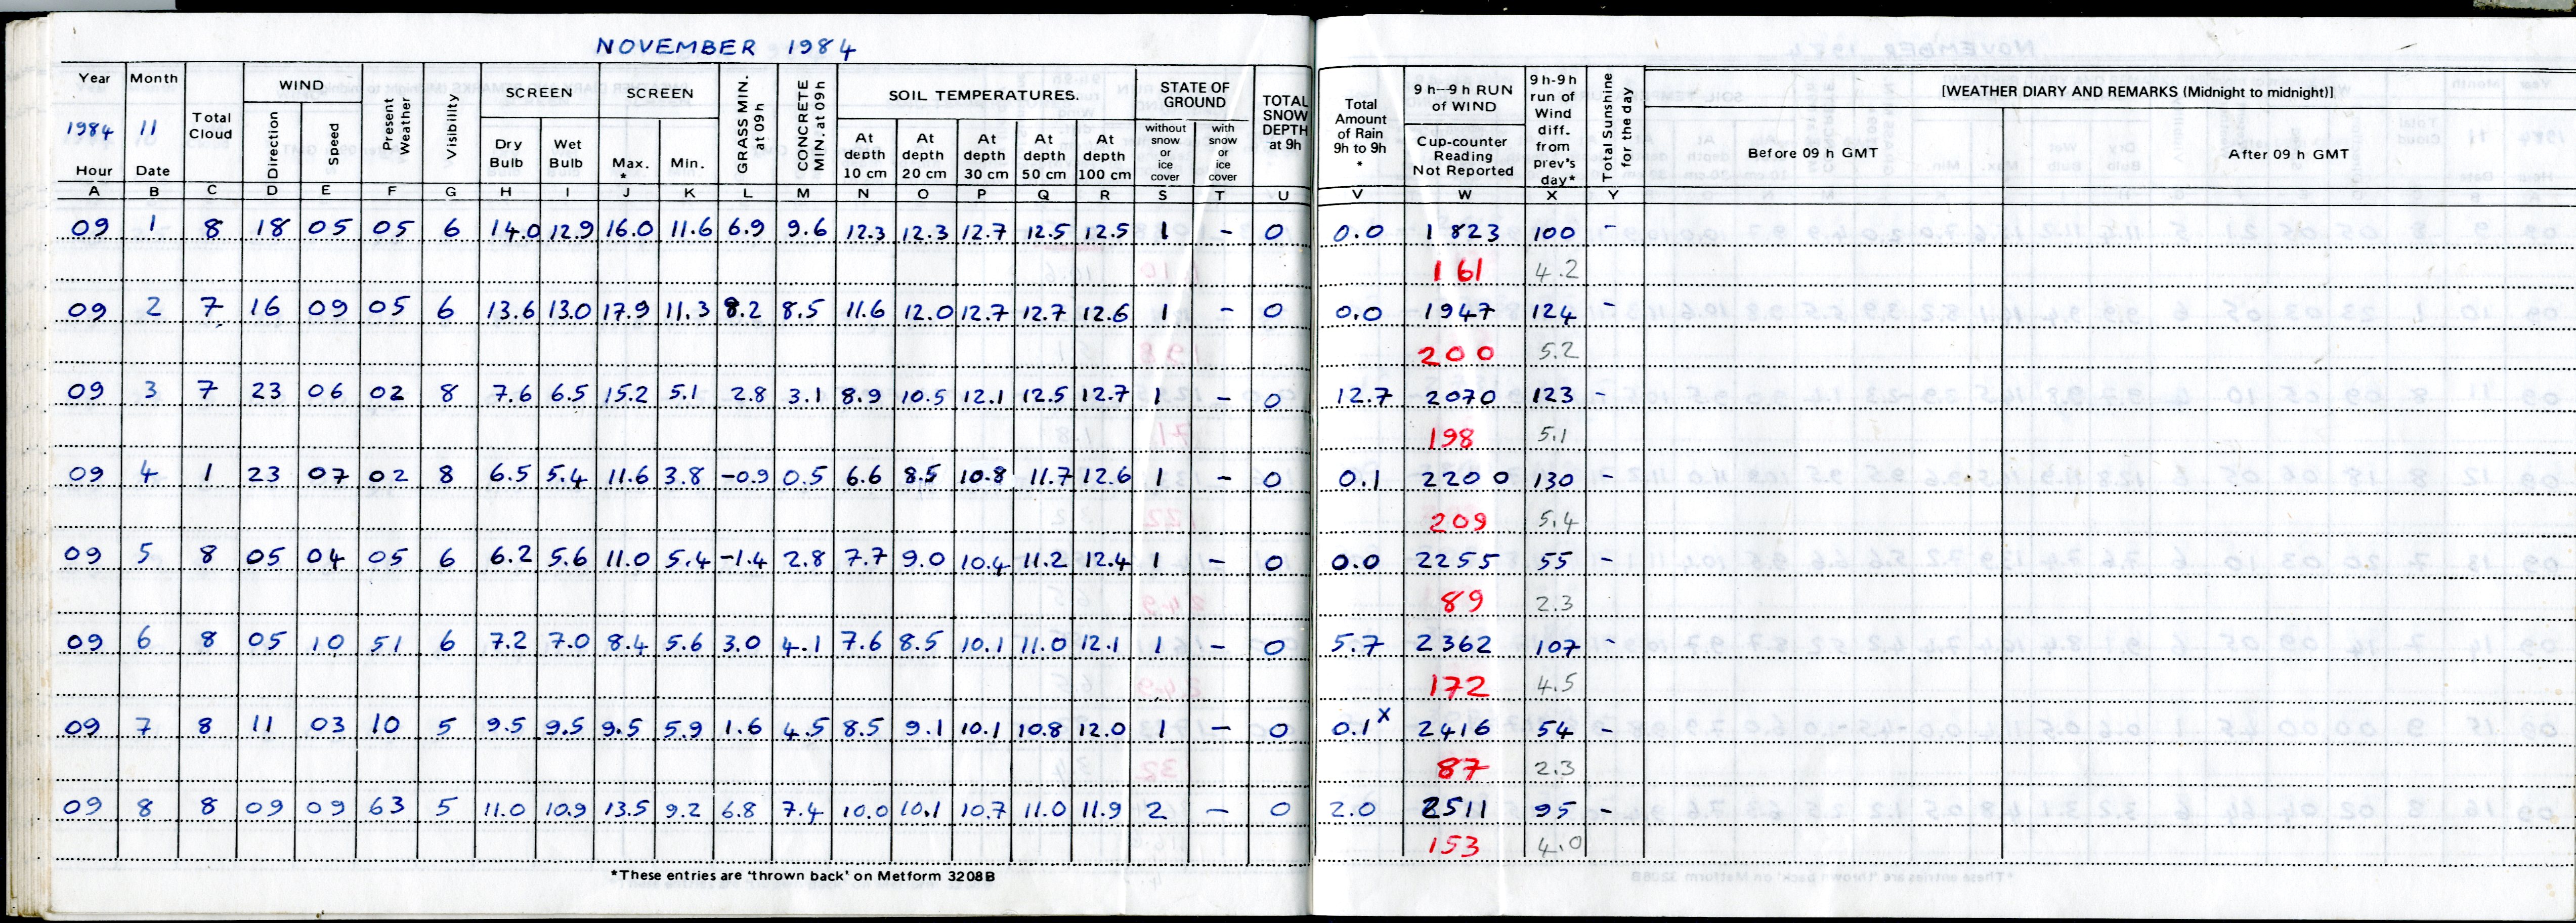 NOVEMBER 1984
Year Month Total Cloud WIND Present Weather Visibility SCREEN SCREEN GRASS MIN. at 09h CONCRETE MIN. at 09h SOIL TEMPERATURES. STATE OF GROUND TOTAL SNOW DEPTH at 9h Total Amount of Rain 9h to 9h * 9 h–9 h RUN of WIND 9 h-9 h run of Wind diff. from prev's day* Total Sunshine for the day [WEATHER DIARY AND REMARKS (Midnight to midnight)]
1984 11 Direction Speed Dry Bulb Wet Bulb Max. * Min. At depth 10 cm At depth 20 cm At depth 30 cm At depth 50 cm At depth 100 cm without snow or ice cover with snow or ice cover Cup-counter Reading Not Reported Before 09 h GMT After 09 h GMT
Hour Date
A B C D E F G H I J K L M N O P Q R S T U V W X Y
09 1 8 18 05 05 6 14.0 12.9 16.0 11.6 6.9 9.6 12.3 12.3 12.7 12.5 12.5 1 – 0 0.0 1823 100 –
161 4.2
09 2 7 16 09 05 6 13.6 13.0 17.9 11.3 8.2 8.5 11.6 12.0 12.7 12.7 12.6 1 – 0 0.0 1947 124 –
200 5.2
09 3 7 23 06 02 8 7.6 6.5 15.2 5.1 2.8 3.1 8.9 10.5 12.1 12.5 12.7 1 – 0 12.7 2070 123 –
198 5.1
09 4 1 23 07 02 8 6.5 5.4 11.6 3.8 -0.9 0.5 6.6 8.5 10.8 11.7 12.6 1 – 0 0.1 2200 130 –
209 5.4
09 5 8 05 04 05 6 6.2 5.6 11.0 5.4 -1.4 2.8 7.7 9.0 10.4 11.2 12.4 1 – 0 0.0 2255 55 –
89 2.3
09 6 8 05 10 51 6 7.2 7.0 8.4 5.6 3.0 4.1 7.6 8.5 10.1 11.0 12.1 1 – 0 5.7 2362 107 –
172 4.5
09 7 8 11 03 10 5 9.5 9.5 9.5 5.9 1.6 4.5 8.5 9.1 10.1 10.8 12.0 1 – 0 0.1x 2416 54 –
87 2.3
09 8 8 09 09 63 5 11.0 10.9 13.5 9.2 6.8 7.4 10.0 10.1 10.7 11.0 11.9 2 – 0 2.0 2511 95 –
153 4.0
*These entries are 'thrown back' on Metform 3208B